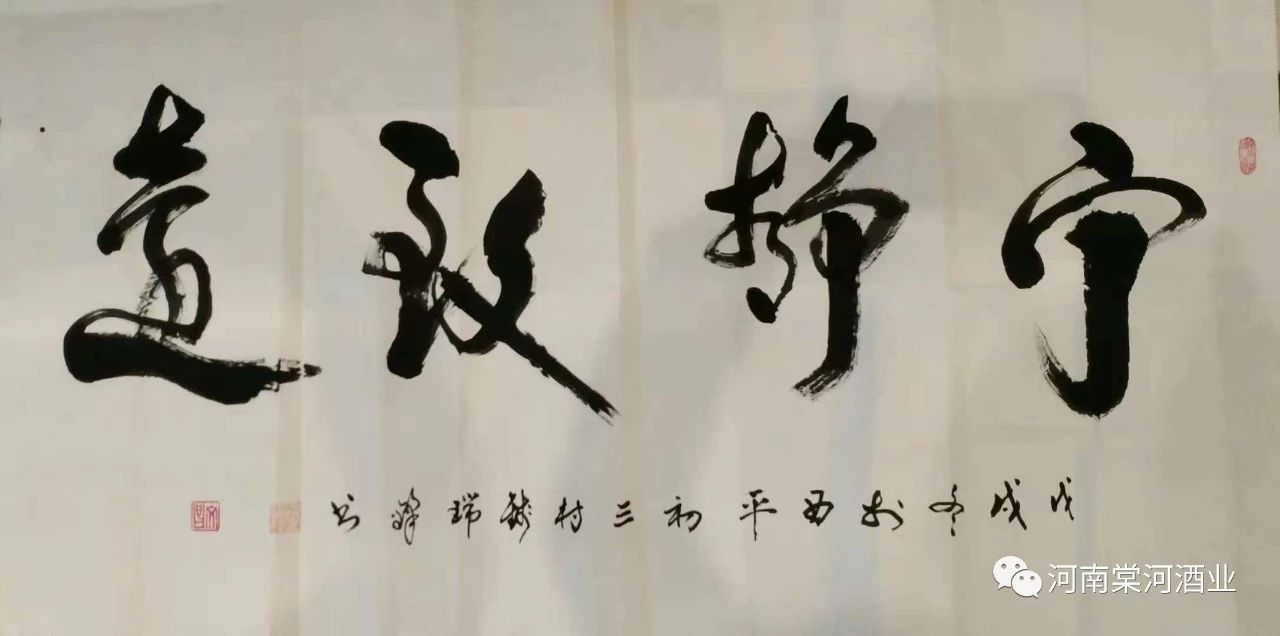 宁静致远
戊戌冬于西平初三特钱瑞锋书
河南棠河酒业